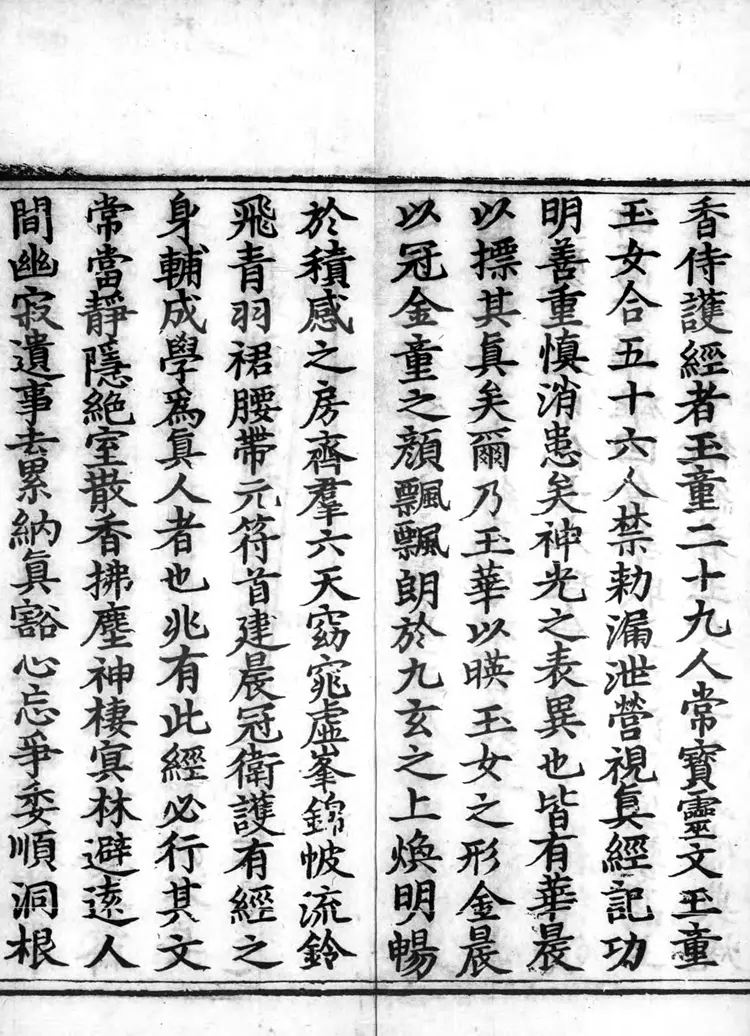 香侍護經者玉童二十九人常寶靈文玉童
玉女合五十六人禁勑漏泄營視真經記功
明善重慎消患矣神光之表異也皆有華晨
以摽其真矣爾乃玉華以暎玉女之形金晨
以冠金童之顔飄飄朗於九玄之上煥明暢
於積感之房齊羣六天窈窕虛峯錦帔流鈴
飛青羽裙腰帶元符首建晨冠衛護有經之
身輔成學爲真人者也兆有此經必行其文
常當靜隱絶室散香拂塵神棲冥林避遠人
間幽寂遺事去累納真豁心忘爭委順洞根